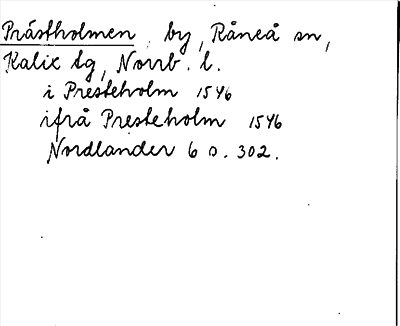 Prästholmen, by, Råneå sn,
Kalix tg, Norrb. l.
i Presteholm 1546
ifrå Presteholm 1546
Nordlander 6 s. 302.